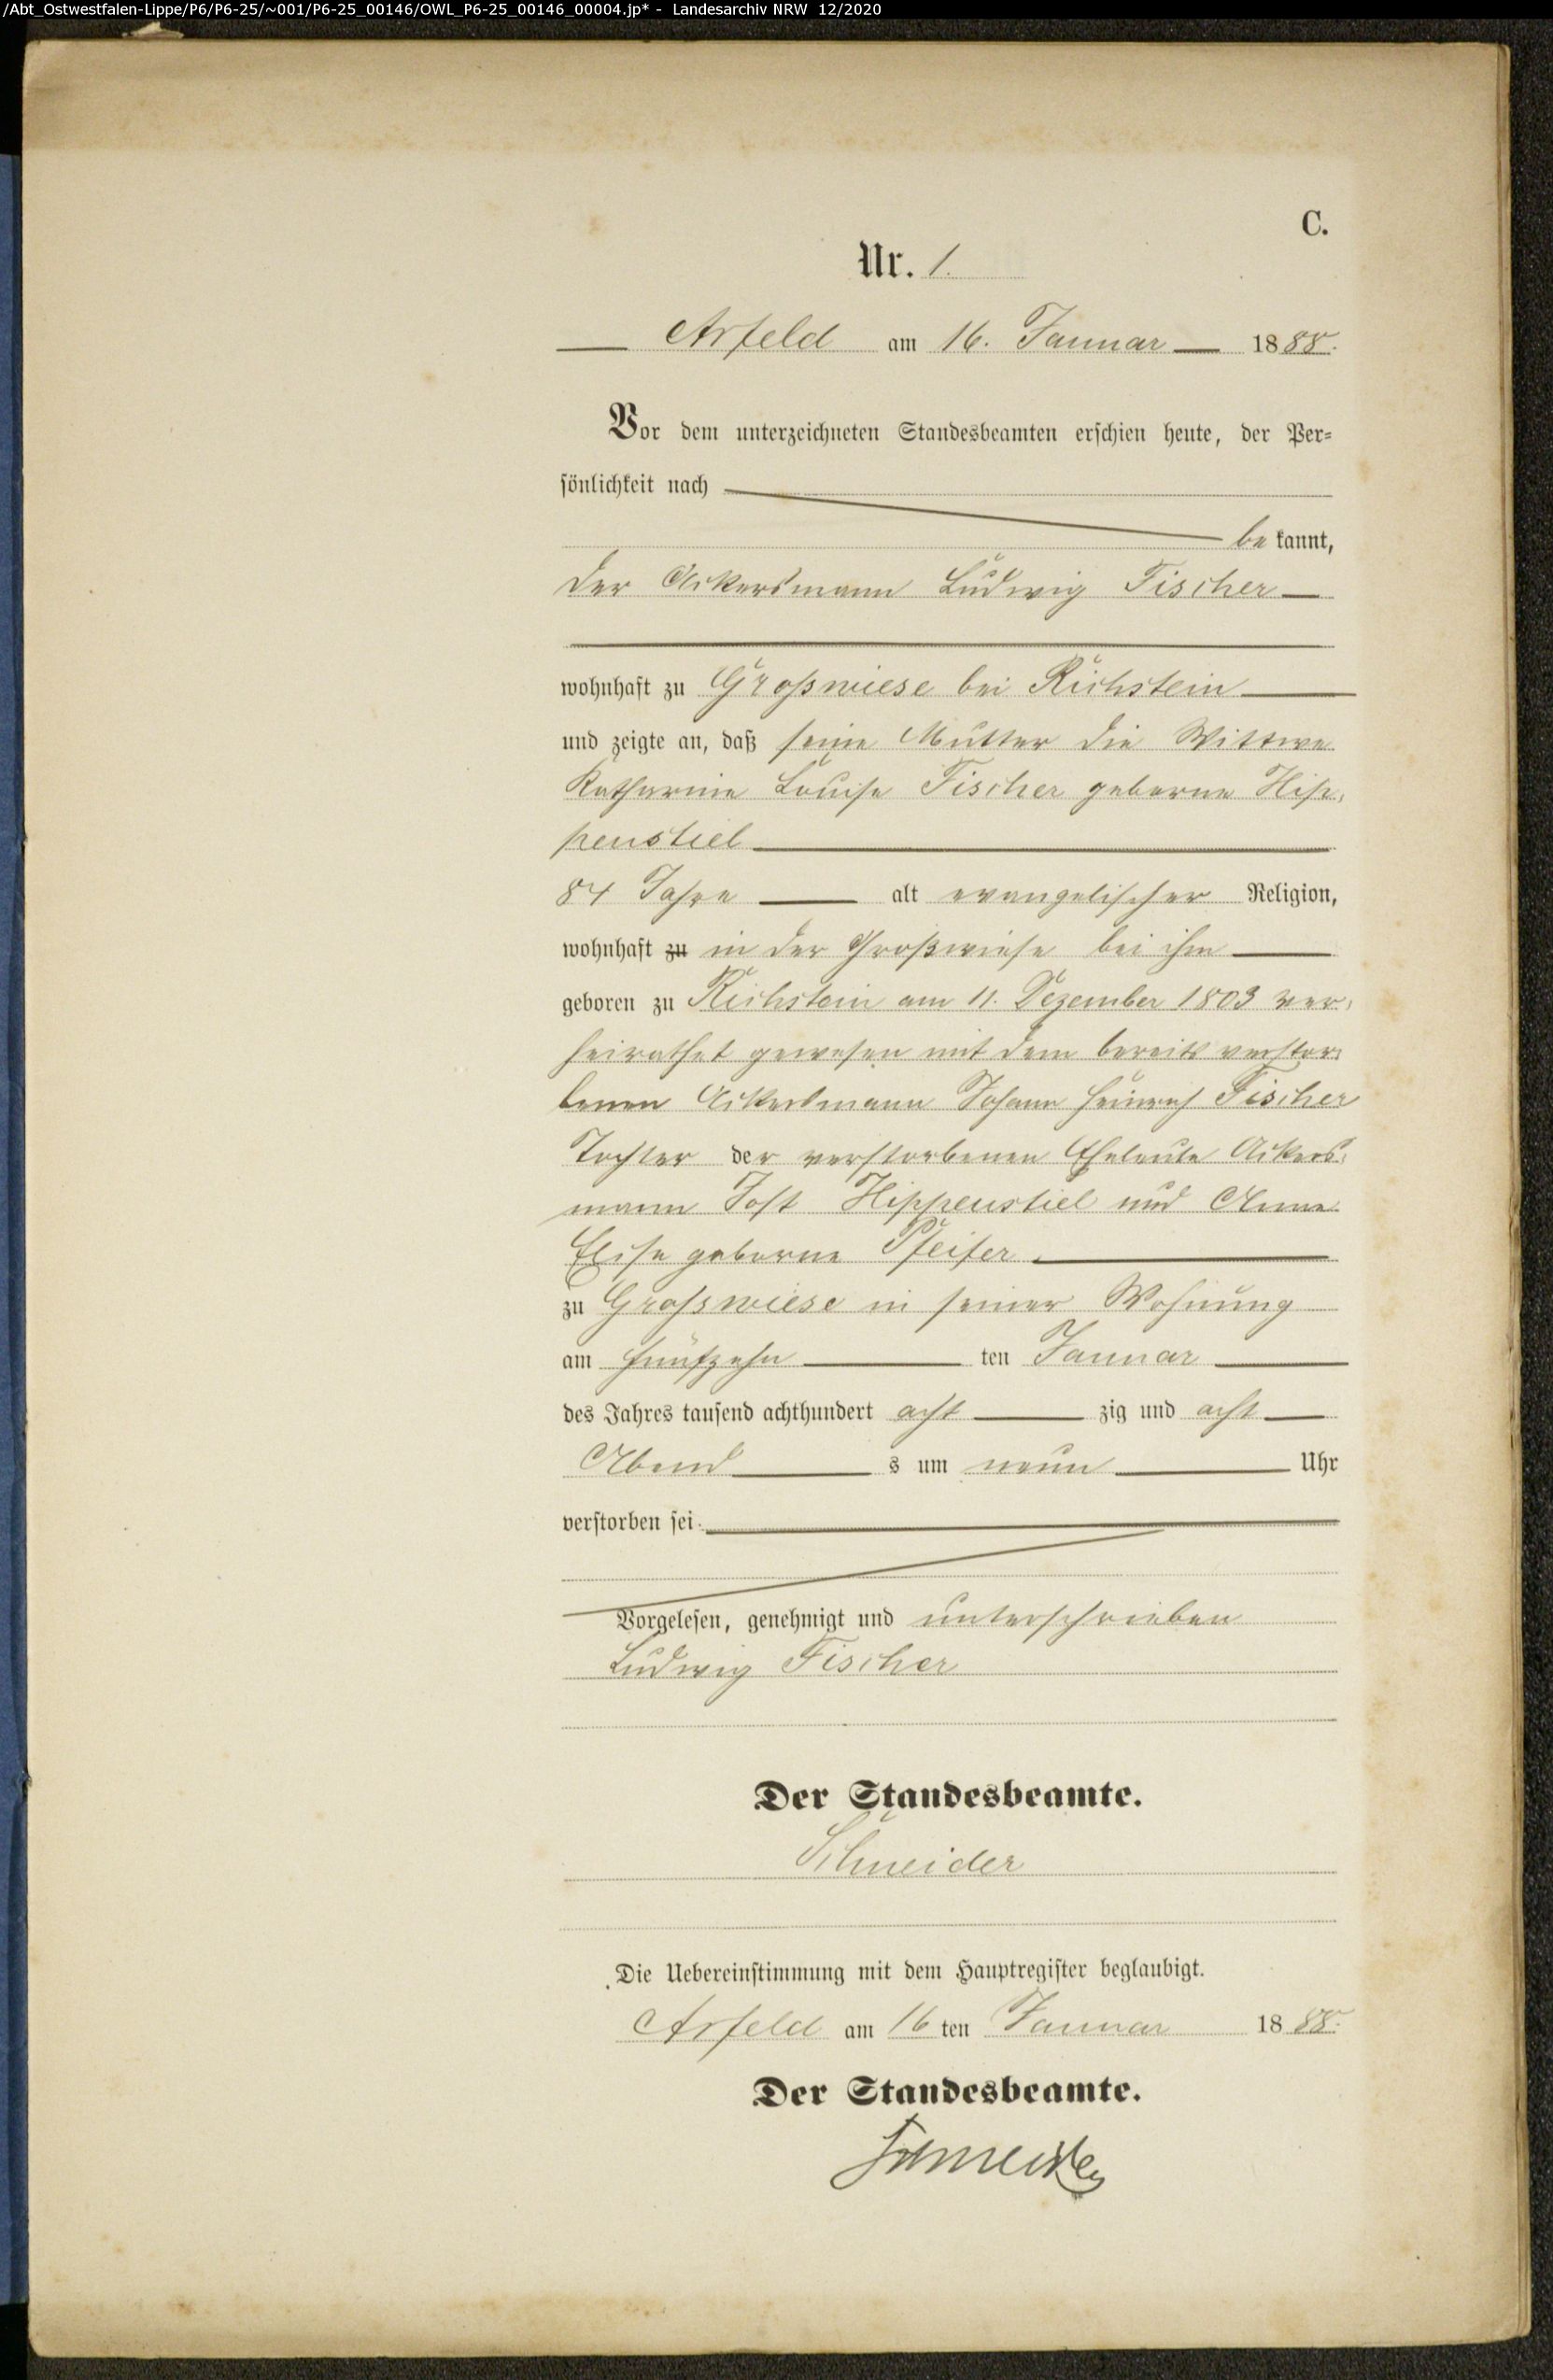 /Abt_Ostwestfalen-Lippe/P6/P6-25/~001/P6-25_00146/OWL_P6-25_00146_00004.jp* - Landesarchiv NRW 12/2020
C.
Nr. 1.
Arfeld am 16. Januar 1888.
Vor dem unterzeichneten Standesbeamten erschien heute, der Per=
sönlichkeit nach
be kannt,
der Ackersmann Ludwig Fischer
wohnhaft zu Großwiese bei Richstein
und zeigte an, daß seine Mutter die Wittwe
Katharine Louise Fischer geborne Hip,
penstiel
84 Jahre alt evangelischer Religion,
wohnhaft zu in der Großwiese bei ihm
geboren zu Richstein am 11. Dezember 1803 ver,
heirathet gewesen mit dem bereits verstor,
benen Ackersmann Johann Heinrich Fischer
Tochter der verstorbenen Eheleute Ackers,
mann Jost Hippenstiel und Anna
Elise geborne Pfeifer
zu Grosswiese in seiner Wohnung
am fünfzehn ten Januar
des Jahres tausend achthundert acht zig und acht
Abend s um neun Uhr
verstorben sei.
Vorgelesen, genehmigt und unterschrieben
Ludwig Fischer
Der Standesbeamte.
Schneider
Die Uebereinstimmung mit dem Hauptregister beglaubigt.
Arfeld am 16 ten Januar 1888.
Der Standesbeamte.
Schneider